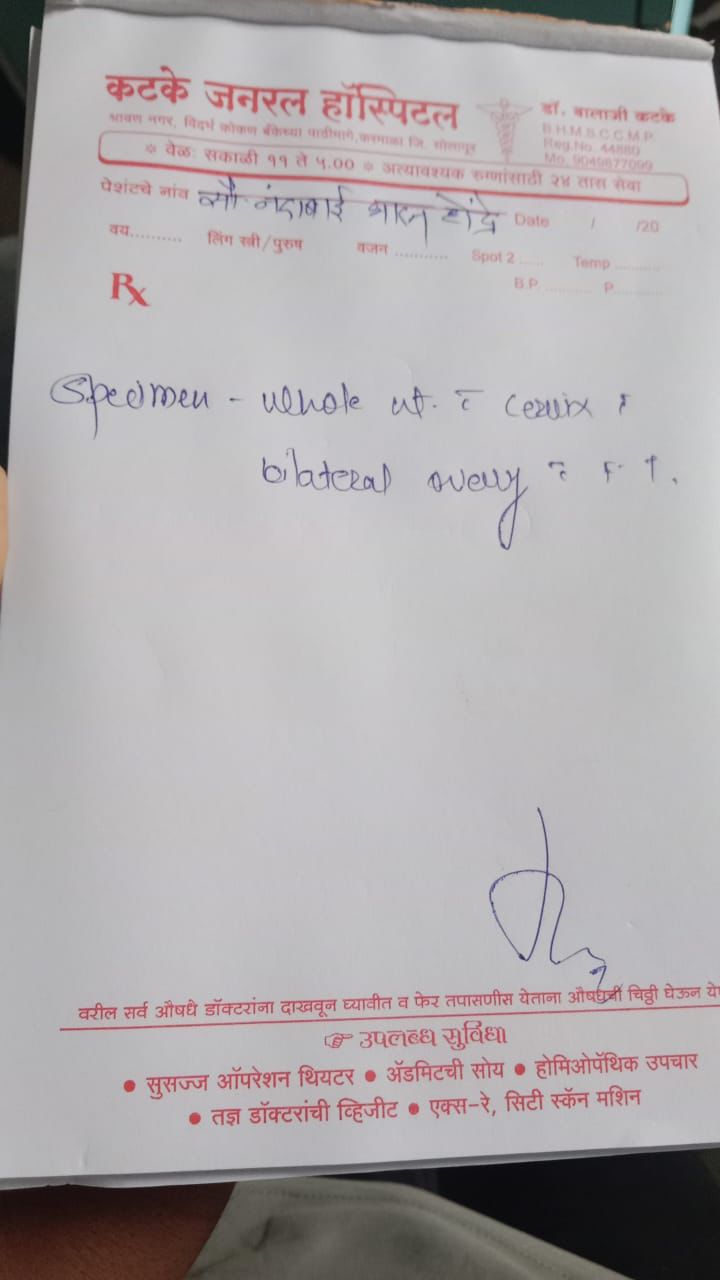 कटके जनरल हॉस्पिटल
श्रावण नगर, विदर्भ कोकण बँकेच्या पाठीमागे, करमाळा जि. सोलापूर
डॉ. बालाजी कटके
B.H.M.S.C.C.M.P.
Reg.No. 44880
Mo. 9049877099
* वेळ: सकाळी ११ ते ५.०० * अत्यावश्यक रुग्णांसाठी २४ तास सेवा
पेशंटचे नांव सौ नंदाबाई भारत Date / /20
वय.......... लिंग स्त्री/पुरुष वजन ........... Spot 2 ...... Temp ..........
B.P. .......... P..........
Rx
Specimen - whole ut. c̄ cervix
bilateral overy c̄ F. T.
वरील सर्व औषधे डॉक्टरांना दाखवून घ्यावीत व फेर तपासणीस येताना औषधांची चिठ्ठी घेऊन
☞ उपलब्ध सुविधा
● सुसज्ज ऑपरेशन थियटर ● ॲडमिटची सोय ● होमिओपॅथिक उपचार
● तज्ञ डॉक्टरांची व्हिजीट ● एक्स-रे, सिटी स्कॅन मशिन